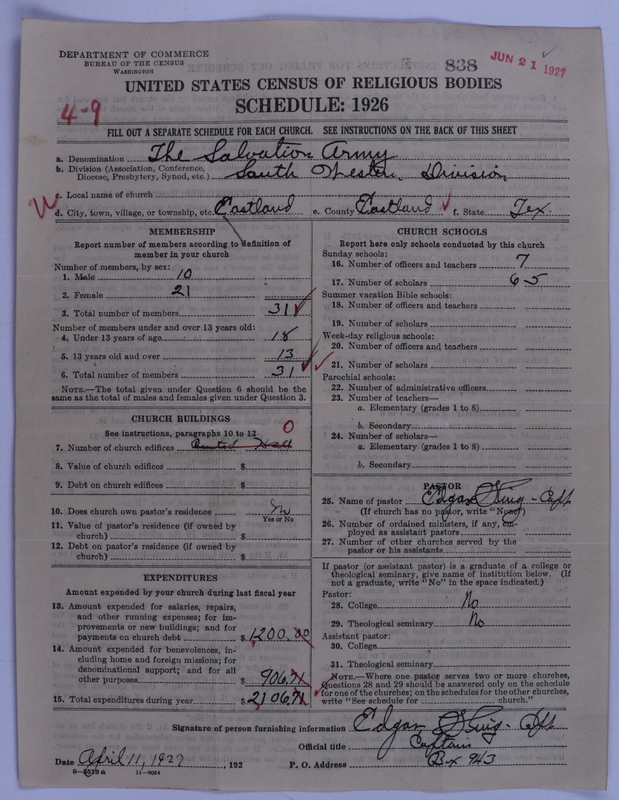 DEPARTMENT OF COMMERCE
BUREAU OF THE CENSUS
WASHINGTON
838
JUN 21 1927
UNITED STATES CENSUS OF RELIGIOUS BODIES
SCHEDULE: 1926
4-9
FILL OUT A SEPARATE SCHEDULE FOR EACH CHURCH. SEE INSTRUCTIONS ON THE BACK OF THIS SHEET
a. Denomination The Salvation Army
b. Division (Association, Conference, Diocese, Presbytery, Synod, etc.) South Western Division
c. Local name of church
d. City, town, village, or township, etc. Eastland e. County Eastland f. State Tex.
MEMBERSHIP
Report number of members according to definition of
member in your church
Number of members, by sex:
1. Male 10
2. Female 21
3. Total number of members 31
Number of members under and over 13 years old:
4. Under 13 years of age 18
5. 13 years old and over 13
6. Total number of members 31
NOTE.—The total given under Question 6 should be the
same as the total of males and females given under Question 3.
CHURCH BUILDINGS
See instructions, paragraphs 10 to 12
7. Number of church edifices Rented Hall 0
8. Value of church edifices $
9. Debt on church edifices $
10. Does church own pastor's residence No
Yes or No
11. Value of pastor's residence (if owned by
church) $
12. Debt on pastor's residence (if owned by
church) $
EXPENDITURES
Amount expended by your church during last fiscal year
13. Amount expended for salaries, repairs,
and other running expenses; for im-
provements or new buildings; and for
payments on church debt $ 1200.00
14. Amount expended for benevolences, in-
cluding home and foreign missions; for
denominational support; and for all
other purposes $ 906.71
15. Total expenditures during year $ 2106.71
CHURCH SCHOOLS
Report here only schools conducted by this church
Sunday schools:
16. Number of officers and teachers 7
17. Number of scholars 65
Summer vacation Bible schools:
18. Number of officers and teachers
19. Number of scholars
Week-day religious schools:
20. Number of officers and teachers
21. Number of scholars
Parochial schools:
22. Number of administrative officers
23. Number of teachers—
a. Elementary (grades 1 to 8)
b. Secondary
24. Number of scholars—
a. Elementary (grades 1 to 8)
b. Secondary
PASTOR
25. Name of pastor Edgar
(If church has no pastor, write "None")
26. Number of ordained ministers, if any, em-
ployed as assistant pastors
27. Number of other churches served by the
pastor or his assistants
If pastor (or assistant pastor) is a graduate of a college or
theological seminary, give name of institution below. (If
not a graduate, write "No" in the space indicated.)
Pastor:
28. College No
29. Theological seminary No
Assistant pastor:
30. College
31. Theological seminary
NOTE.—Where one pastor serves two or more churches,
Questions 28 and 29 should be answered only on the schedule
for one of the churches; on the schedules for the other churches,
write "See schedule for church."
Signature of person furnishing information Edgar
Official title Captain
Date April 11, 1927, 192 P. O. Address Box 943
8-4513 a 11-9084